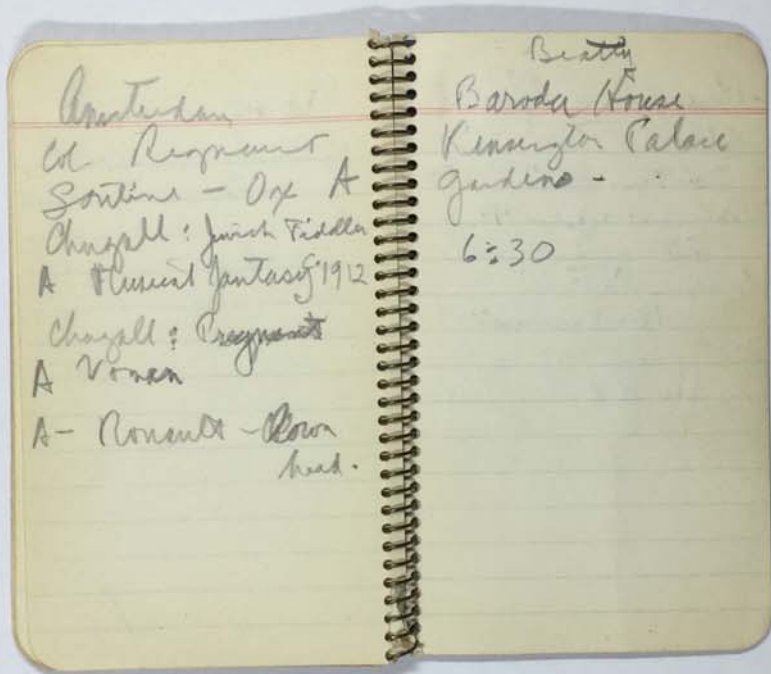 Amsterdam
Col Regnault
Soutine - Ox A
Chagall: Jewish Fiddler
A Musical fantasy 1912
Chagall: Pregnant
A Woman
A - Rouault - Clown
head.
Beatty
Baroda House
Kensington Palace
Gardens -
6:30